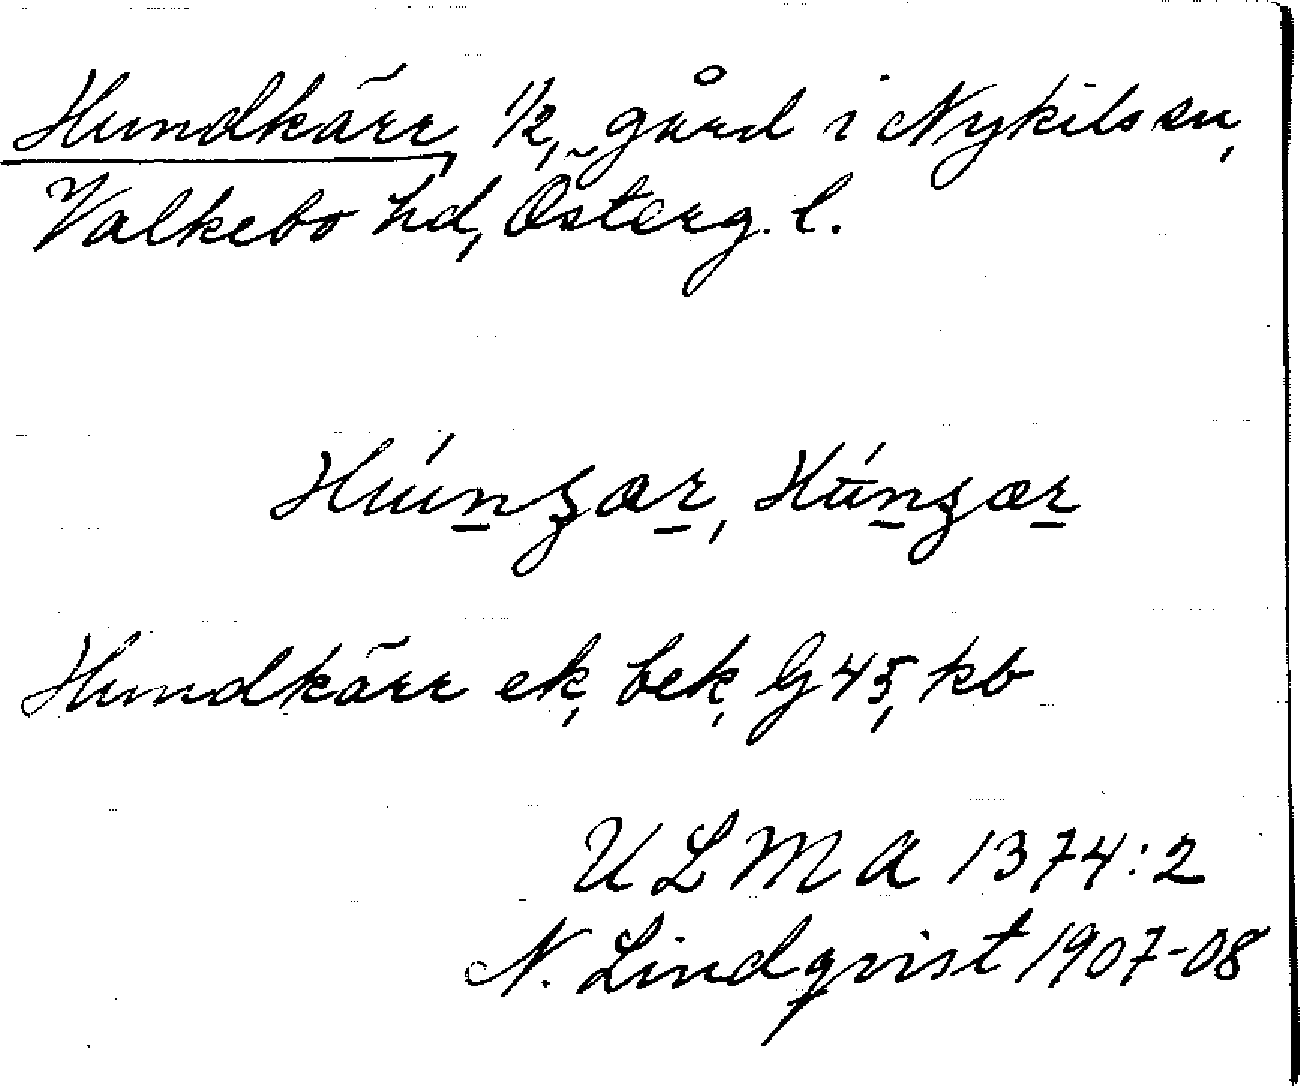 Hundkärr, 1/2, gård i Nykils sn,
Valkebo hd, Österg. l.
Húnȝær, Húnȝær
Hundkärr ek, bek, G 45, kb
ULMA 1374:2
N. Lindqvist 1907-08